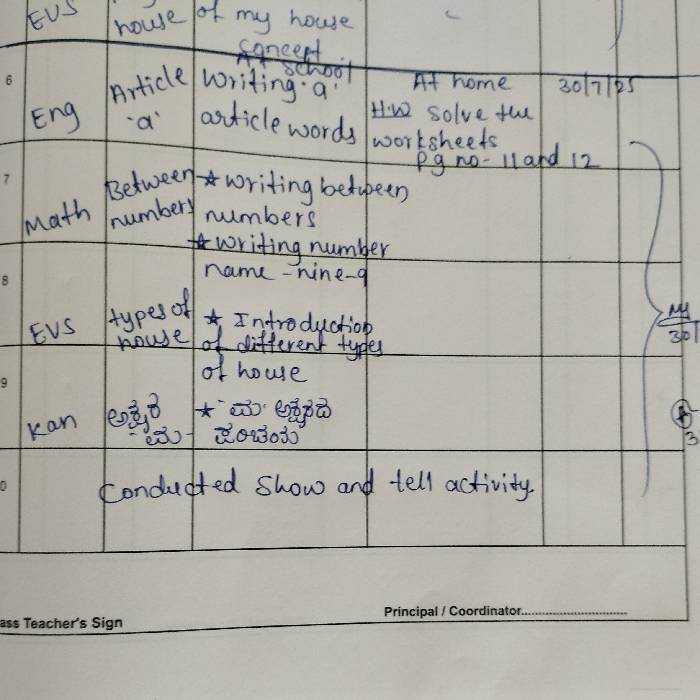 EVS house of my house
concept
At school
6 Eng Article 'a' Writing 'a' article words At home 30/7/25
H.W Solve the
worksheets
Pg no- 11 and 12
7 Math Between numbers ★ Writing between
numbers
★ Writing number
name - nine-9
8 EVS types of house ★ Introduction
of different types
of house
9 Kan ಅಕ್ಷರ 'ಮ' ★ 'ಮ' ಅಕ್ಷರದ
ಪರಿಚಯ
0 Conducted Show and tell activity.
ass Teacher's Sign
Principal / Coordinator